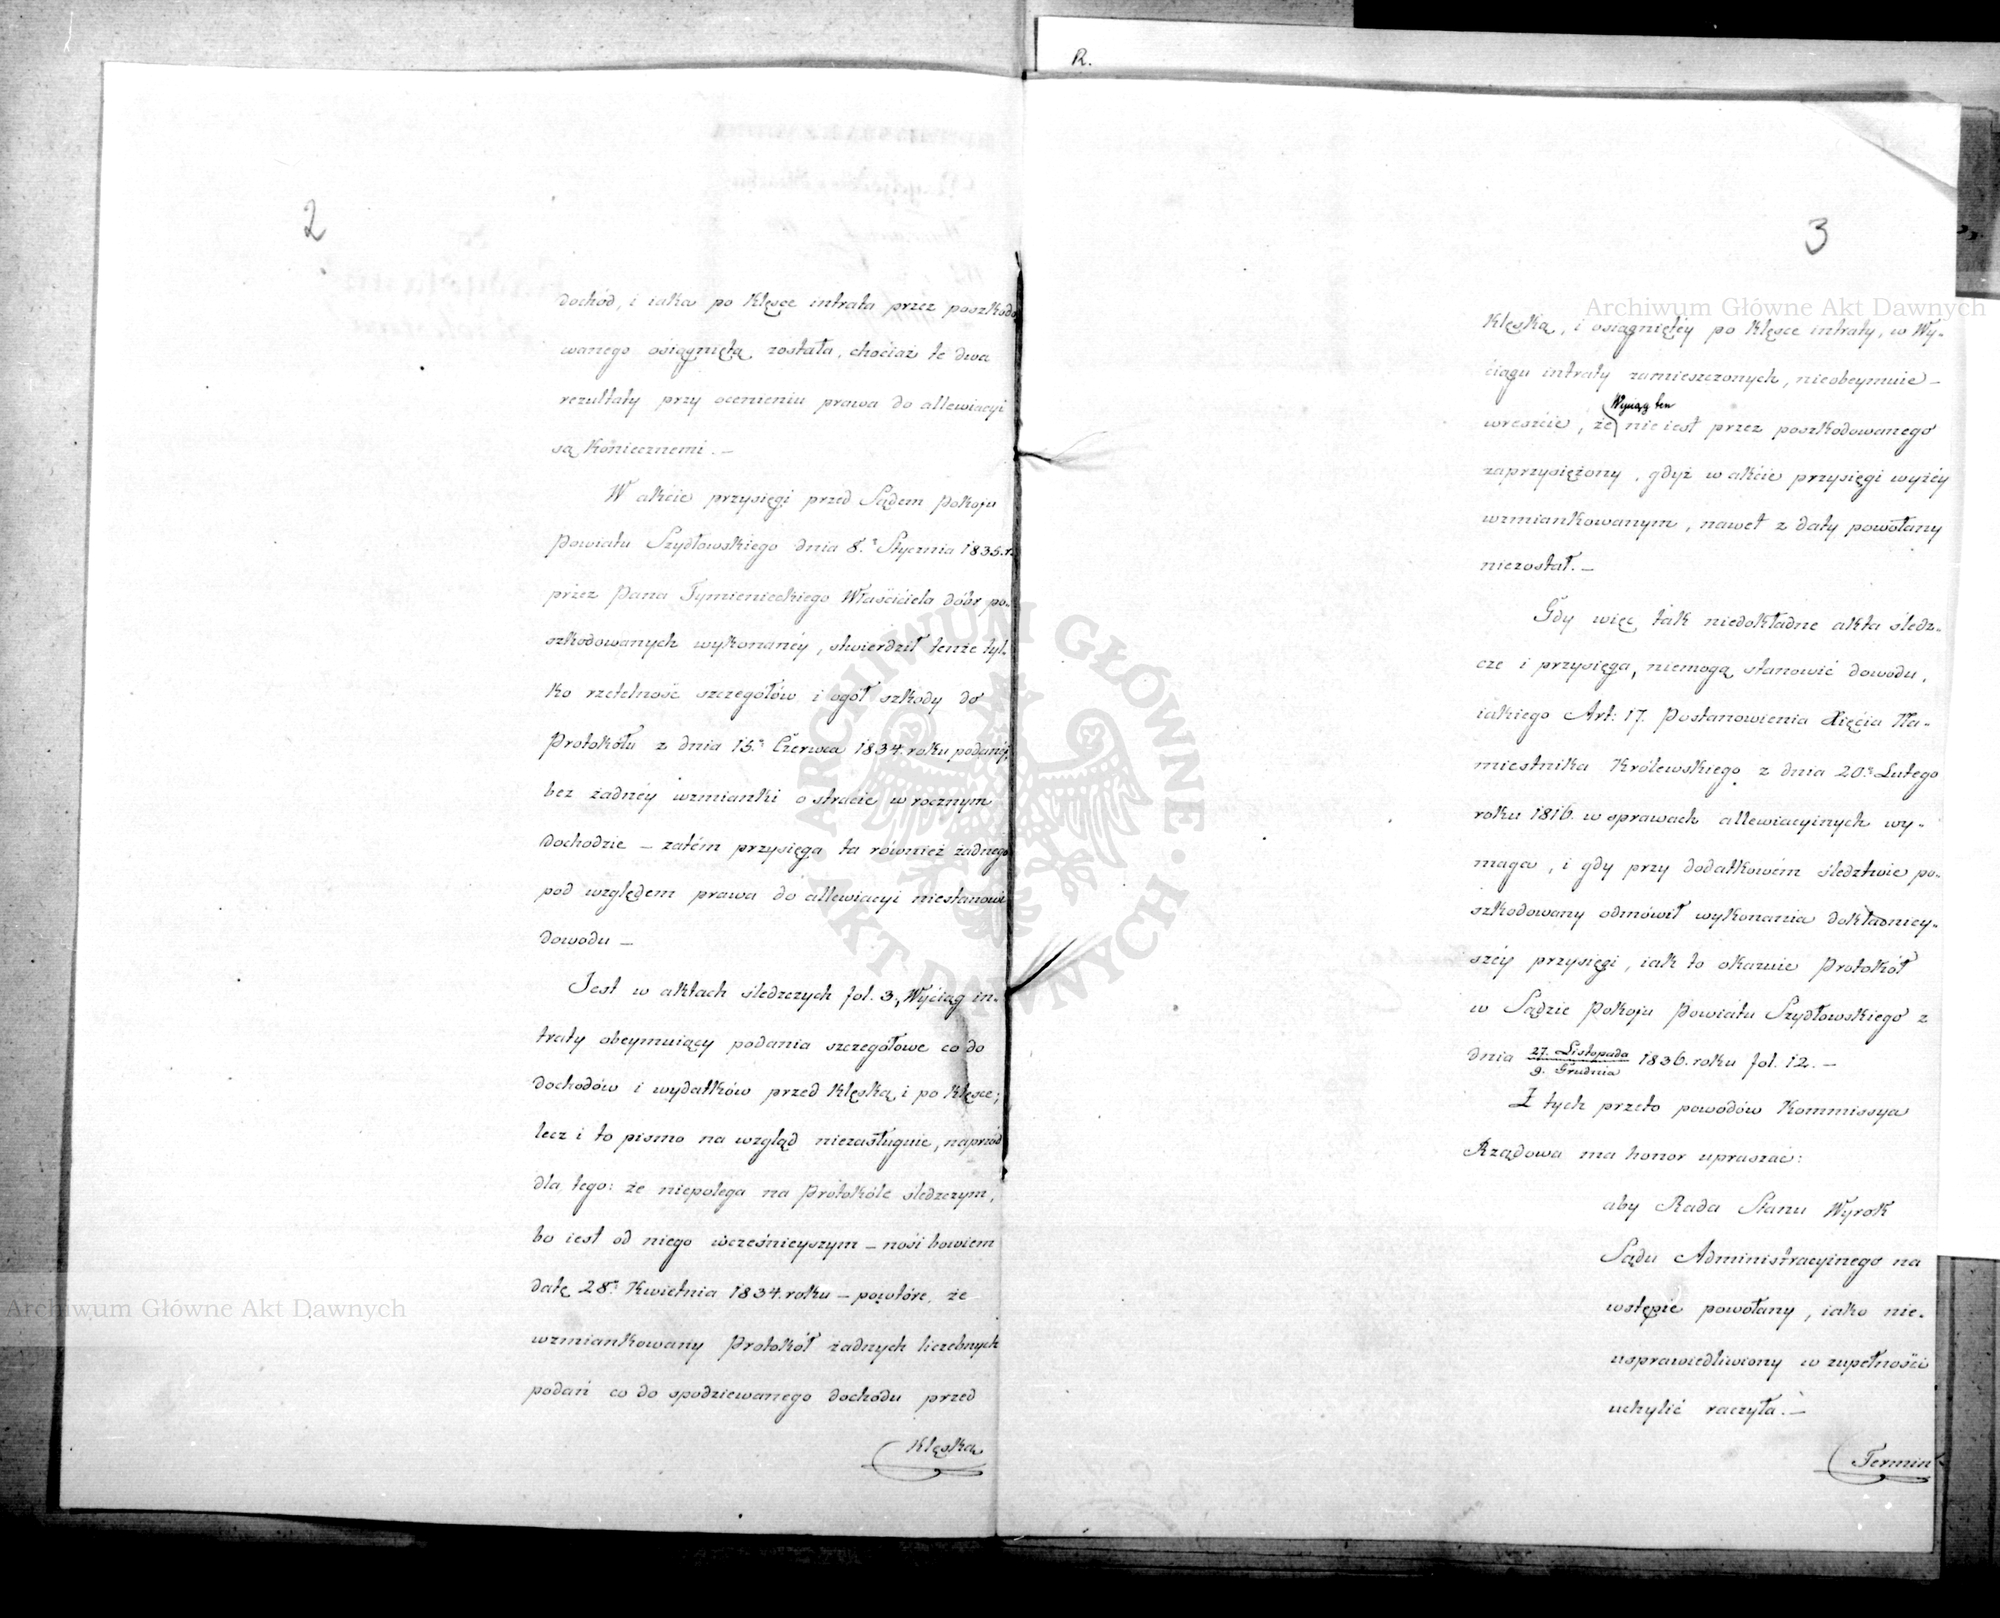 R.
2
dochód, i iaka po klęsce intrata przez poszkodo
wanego osiągniętą została, chociaż te dwa
rezultaty przy ocenieniu prawa do allewiacyi
są koniecznemi. —
W akcie przysięgi przed Sądem Pokoju
Powiatu Szydłowskiego dnia 8. Stycznia 1835. r.
przez Pana Tymienieckiego Właściciela dóbr po-
szkodowanych wykonanéy, stwierdził tenże tyl-
ko rzetelność szczegółów i ogół szkody do
Protokółu z dnia 15. Czerwca 1834. roku podanéy,
bez żadnéy wzmianki o stracie w rocznym
dochodzie — zatém przysięga ta również żadnego
pod względem prawa do allewiacyi niestanowi
dowodu —
Jest w aktach śledzczych fol. 3, Wyciąg in-
traty obeymuiący podania szczegółowe co do
dochodów i wydatków przed klęską, i po klęsce;
lecz i to pismo na wzgląd niezasługuie, naprzód
dla tego: że niepolega na Protokóle śledzczym,
bo iest od niego wcześnieyszym — nosi bowiem
datę 28. Kwietnia 1834. roku — powtóre, że
wzmiankowany Protokół żadnych liczebnych
podań co do spodziewanego dochodu przed
Klęską
3
Klęską, i osiągniętéy po klęsce intraty, w Wy-
ciągu intraty zamieszczonych, nieobeymuie —
Wyciąg ten
wreszcie, że nie iest przez poszkodowanego
zaprzysiężony, gdyż w akcie przysięgi wyżéy
wzmiankowanym, nawet z daty powołany
niezostał. —
Gdy więc tak niedokładne akta śledz-
cze i przysięga, niemogą stanowić dowodu,
iakiego Art: 17. Postanowienia Xięcia Na-
miestnika Królewskiego z dnia 20. Lutego
roku 1816. w sprawach allewiacyinych wy-
maga, i gdy przy dodatkowém śledztwie po-
szkodowany odmówił wykonania dokładniey-
széy przysięgi, iak to okazuie Protokół
w Sądzie Pokoju Powiatu Szydłowskiego z
dnia 27. Listopada / 9. Grudnia 1836. roku fol. 12. —
Z tych przeto powodów Kommissya
Rządowa ma honor upraszać:
aby Rada Stanu Wyrok
Sądu Administracyinego na
wstępie powołany, iako nie-
usprawiedliwiony w zupełności
uchylić raczyła. —
Termin
Archiwum Główne Akt Dawnych
Archiwum Główne Akt Dawnych
ARCHIWUM GŁÓWNE · AKT DAWNYCH ·